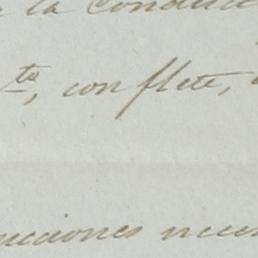 la Conduc
to, con flete,
ucciones neces